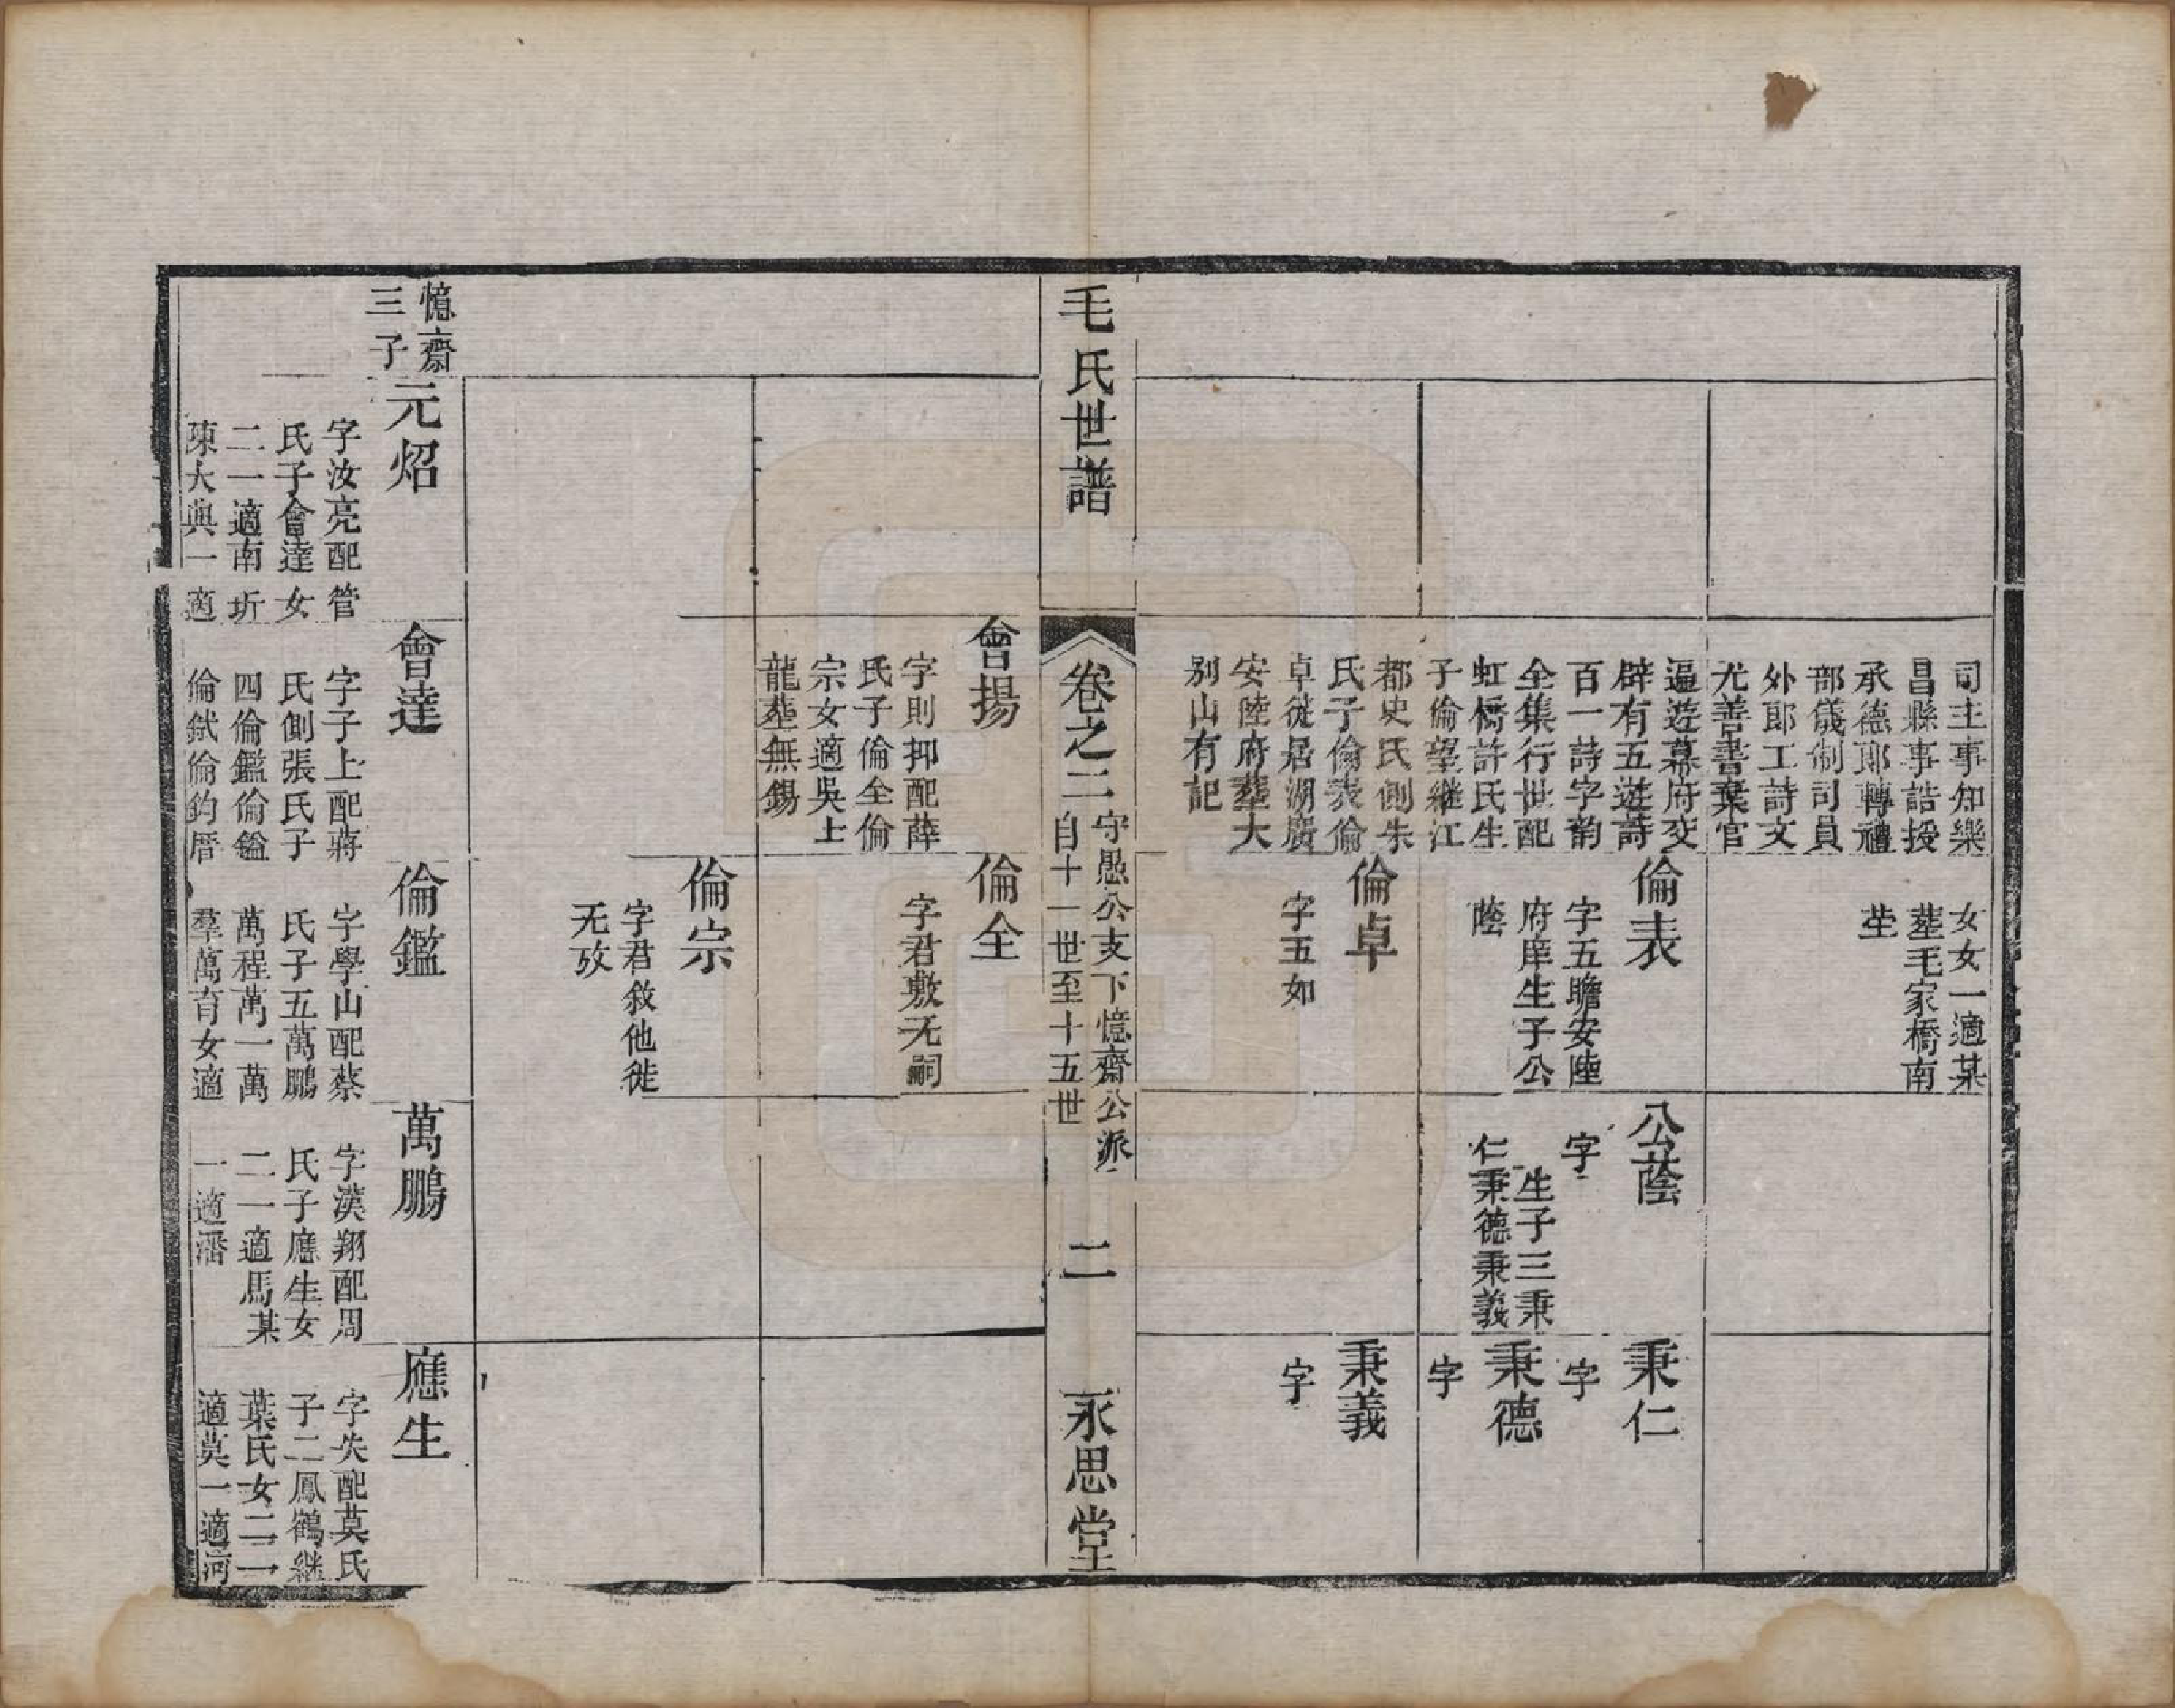 司主事知樂
昌縣事誥授
承德郎轉禮
部儀制司員
外郎工詩文
尤善書棄官
逼遊幕府交
辟有五遊詩
百一詩字韵
全集行世配
虹橋許氏生
子倫望繼江
都史氏側朱
氏子倫表倫
卓徙居湖廣
安陸府葬大
别山有記
女女一適某
葬毛家橋南
塋
倫表
字五瞻安陸
府庠生子公
蔭
倫卓
字五如
公蔭
字
生子三秉
仁秉德秉義
秉仁
字
秉德
字
秉義
字
毛氏世譜
卷之二
守愚公支下憶齋公派
自十一世至十五世
二
永思堂
會揚
字則抑配薛
氏子倫全倫
宗女適吳上
龍葬無錫
倫全
字君敷无嗣
倫宗
字君敘他徙
无攷
憶齋
三子
元炤
字汝亮配管
氏子會達女
二一適南圻
陳大興一適
會達
字子上配蔣
氏側張氏子
四倫鑑倫鎰
倫錻倫鈞厝
倫鑑
字學山配蔡
氏子五萬鵬
萬程萬一萬
羣萬育女適
萬鵬
字漢翔配周
氏子應生女
二一適馬某
一適潘
應生
字失配莫氏
子二鳳鶴繼
葉氏女二一
適莫一適河